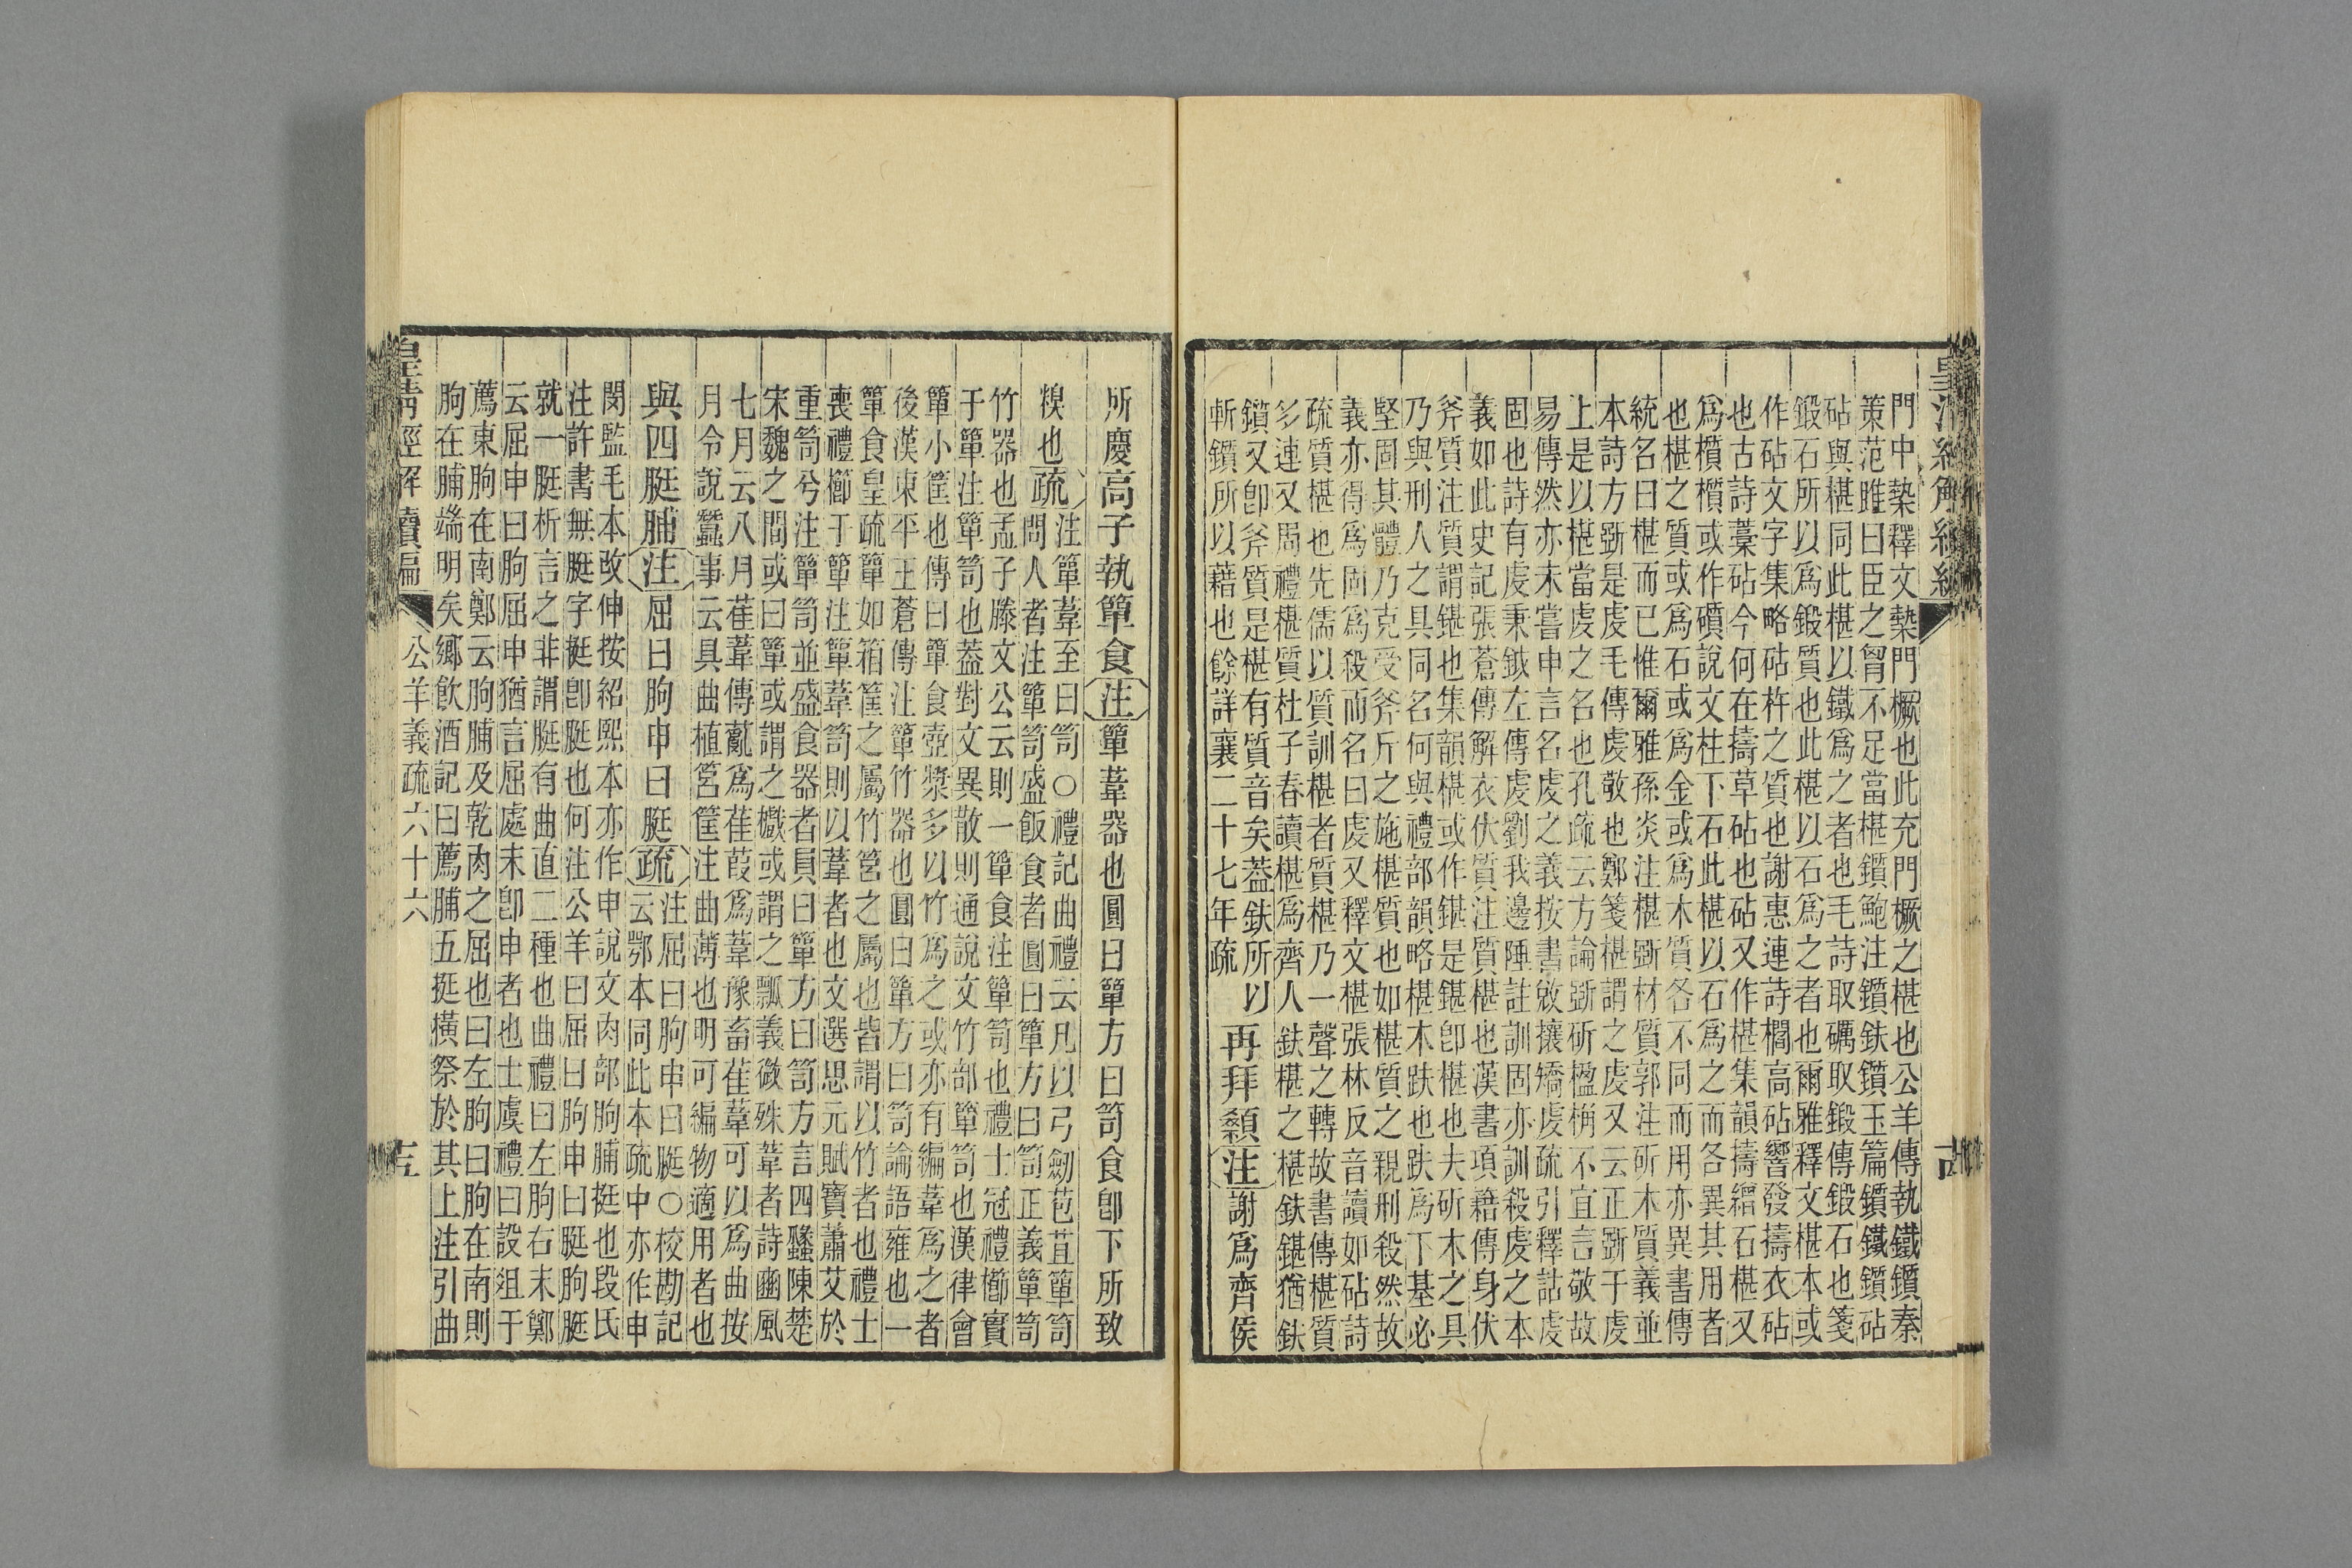 門中槷釋文槷門橛也此充門橛之椹也公羊傳執鐵鑕秦
策范睢曰臣之胷不足當椹鑕鮑注鑕鈇鑕玉篇鑕鐵鑕砧
砧與椹同此椹以鐵爲之者也毛詩取礪取鍛傳鍛石也箋
鍛石所以爲鍛質也此椹以石爲之者也爾雅釋文椹本或
作砧文字集略砧杵之質也謝惠連詩櫩高砧響發擣衣砧
也古詩藁砧今何在擣草砧也砧又作椹集韻擣繒石椹又
爲櫍櫍或作礩說文柱下石此椹以石爲之而各異其用者
也椹之質或爲石或爲金或爲木質各不同而用亦異書傳
統名曰椹而已惟爾雅孫炎注椹斲材質郭注斫木質義並
本詩方斲是虔毛傳虔敬也鄭箋椹謂之虔又云正斲于虔
上是以椹當虔之名也孔疏云方論斲斫楹桷不宜言敬故
易傳然亦未嘗申言名虔之義按書敓攘矯虔疏引釋詁虔
固也詩有虔秉鉞左傳虔劉我邊陲註訓固亦訓殺虔之本
義如此史記張蒼傳解衣伏質注質椹也漢書項籍傳身伏
斧質注質謂鍖也集韻椹或作鍖是鍖卽椹也夫斫木之具
乃與刑人之具同名何與禮部韻略椹木趺也趺爲下基必
堅固其體乃克受斧斤之施椹質也如椹質之親刑殺然故
義亦得爲固爲殺而名曰虔又釋文椹張林反音讀如砧詩
疏質椹也先儒以質訓椹者質椹乃一聲之轉故書傳椹質
多連又周禮椹質杜子春讀椹爲齊人鈇椹之椹鈇鍖猶鈇
鑕又卽斧質是椹有質音矣蓋鈇所以
斬鑕所以藉也餘詳襄二十七年疏
再拜顙注謝爲齊侯
所慶高子執簞食注簞葦器也圓曰簞方曰笥食卽下所致
糗也疏注簞葦至曰笥○禮記曲禮云凡以弓劒苞苴簞笥
問人者注簞笥盛飯食者圓曰簞方曰笥正義簞笥
竹器也孟子滕文公云則一簞食注簞笥也禮士冠禮櫛實
于簞注簞笥也蓋對文異散則通說文竹部簞笥也漢律會
簞小筐也傳曰簞食壺漿多以竹爲之或亦有編葦爲之者
後漢東平王蒼傳注簞竹器也圓曰簞方曰笥論語雍也一
簞食皇疏簞如箱筐之屬竹筥之屬也皆謂以竹者也禮士
喪禮櫛于簞注簞葦笥則以葦者也文選思元賦寶蕭艾於
重笥兮注簞笥並盛食器者員曰簞方曰笥方言四簺陳楚
宋魏之間或曰簞或謂之㰕或謂之瓢義微殊葦者詩豳風
七月云八月萑葦傳薍爲萑葭爲葦豫畜萑葦可以爲曲按
月令說蠶事云具曲植筥筐注曲薄也明可編物適用者也
與四脡脯注屈曰朐申曰脡疏注屈曰朐申曰脡○校勘記
云鄂本同此本疏中亦作申
閩監毛本改伸按紹熙本亦作申說文肉部朐脯挺也段氏
注許書無脡字挺卽脡也何注公羊曰屈曰朐申曰脡朐脡
就一脡析言之非謂脡有曲直二種也曲禮曰左朐右末鄭
云屈申曰朐屈申猶言屈處末卽申者也士虞禮曰設俎于
薦東朐在南鄭云朐脯及乾肉之屈也曰左朐曰朐在南則
朐在脯端明矣鄉飲酒記曰薦脯五挺橫祭於其上注引曲
皇淸經解續編
公羊義疏六十六